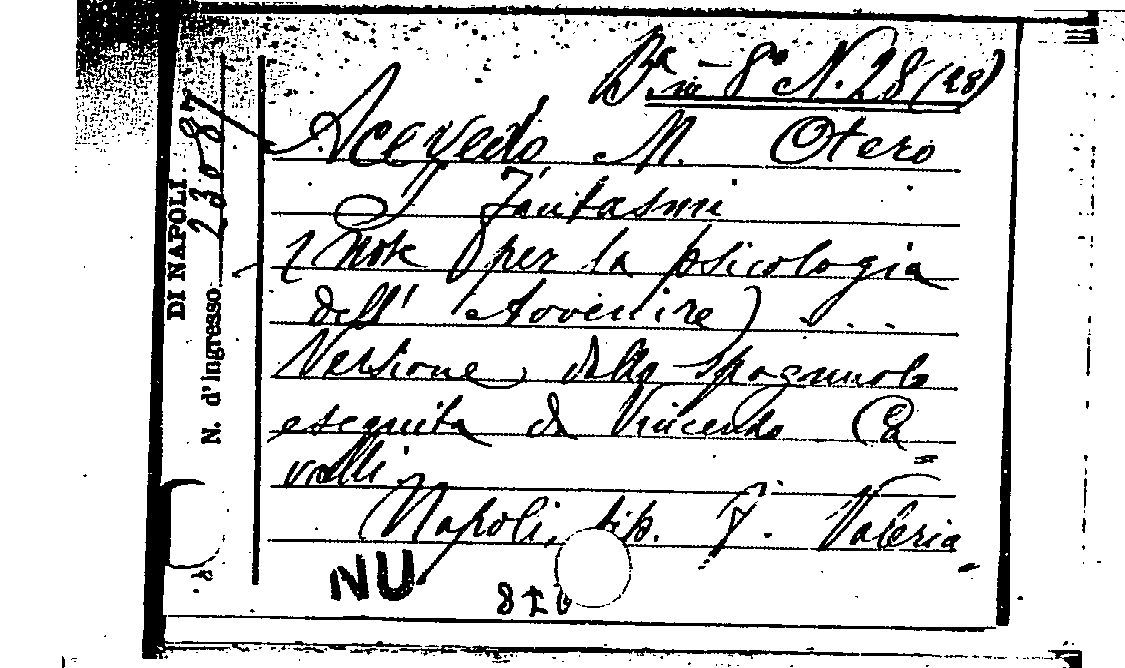 B.ª in 8º N. 28 (28)
Acevedo M. Otero
I Fantasmi
(Note per la psicologia
dell' Avvenire)
Versione dallo spagnuolo
eseguita da Vincenzo Ca=
valli
Napoli, tip. F. Valeria
NU
DI NAPOLI
N. d'ingresso 23087